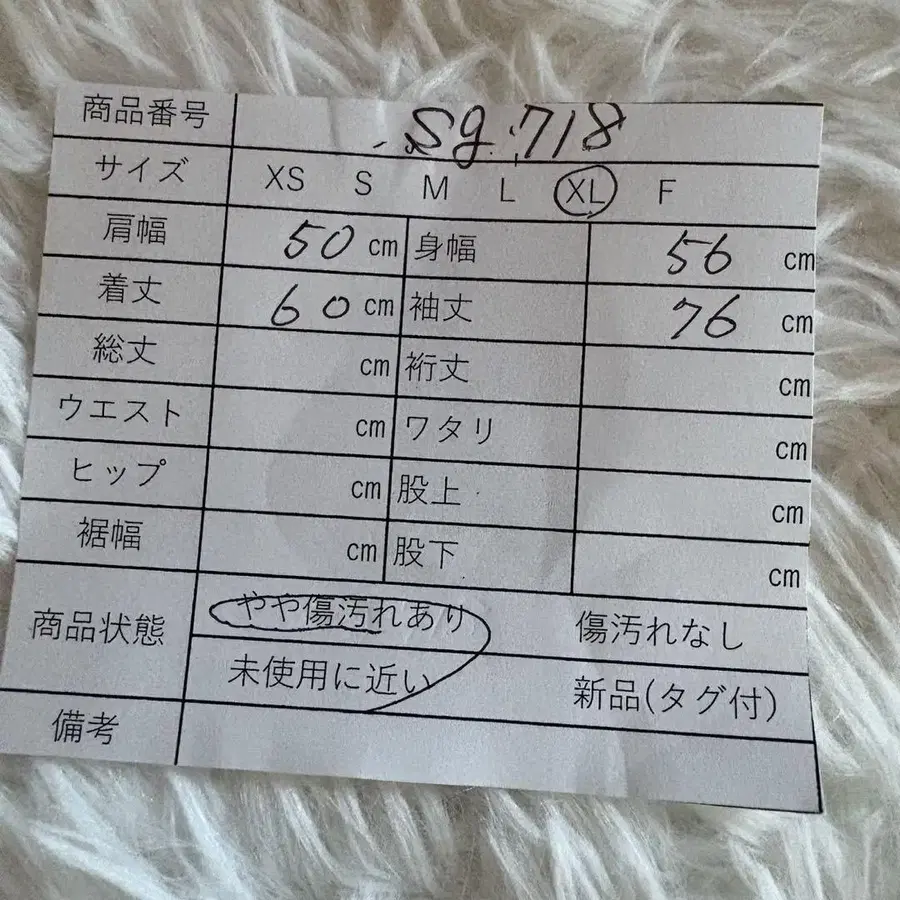 商品番号 sg.718
サイズ XS S M L XL F
肩幅 50 cm 身幅 56 cm
着丈 60 cm 袖丈 76 cm
総丈 cm 裄丈 cm
ウエスト cm ワタリ cm
ヒップ cm 股上 cm
裾幅 cm 股下 cm
商品状態 やや傷汚れあり 傷汚れなし
未使用に近い 新品(タグ付)
備考